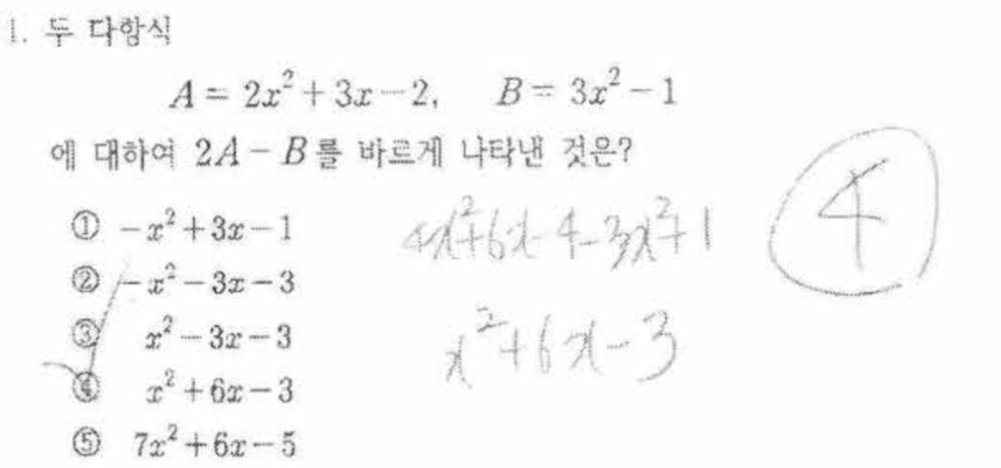 1. 두 다항식
A = 2x² + 3x - 2, B = 3x² - 1
에 대하여 2A - B를 바르게 나타낸 것은?
① -x² + 3x - 1
② -x² - 3x - 3
③ x² - 3x - 3
④ x² + 6x - 3
⑤ 7x² + 6x - 5
4x²+6x-4-3x²+1
x²+6x-3
4